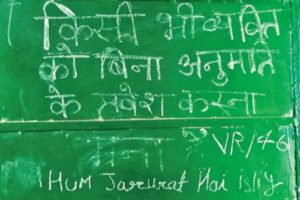 किसी भी व्यक्ति
को बिना अनुमति
के प्रवेश करना
मना
VR/46
HUM Jarurat Hai isliy